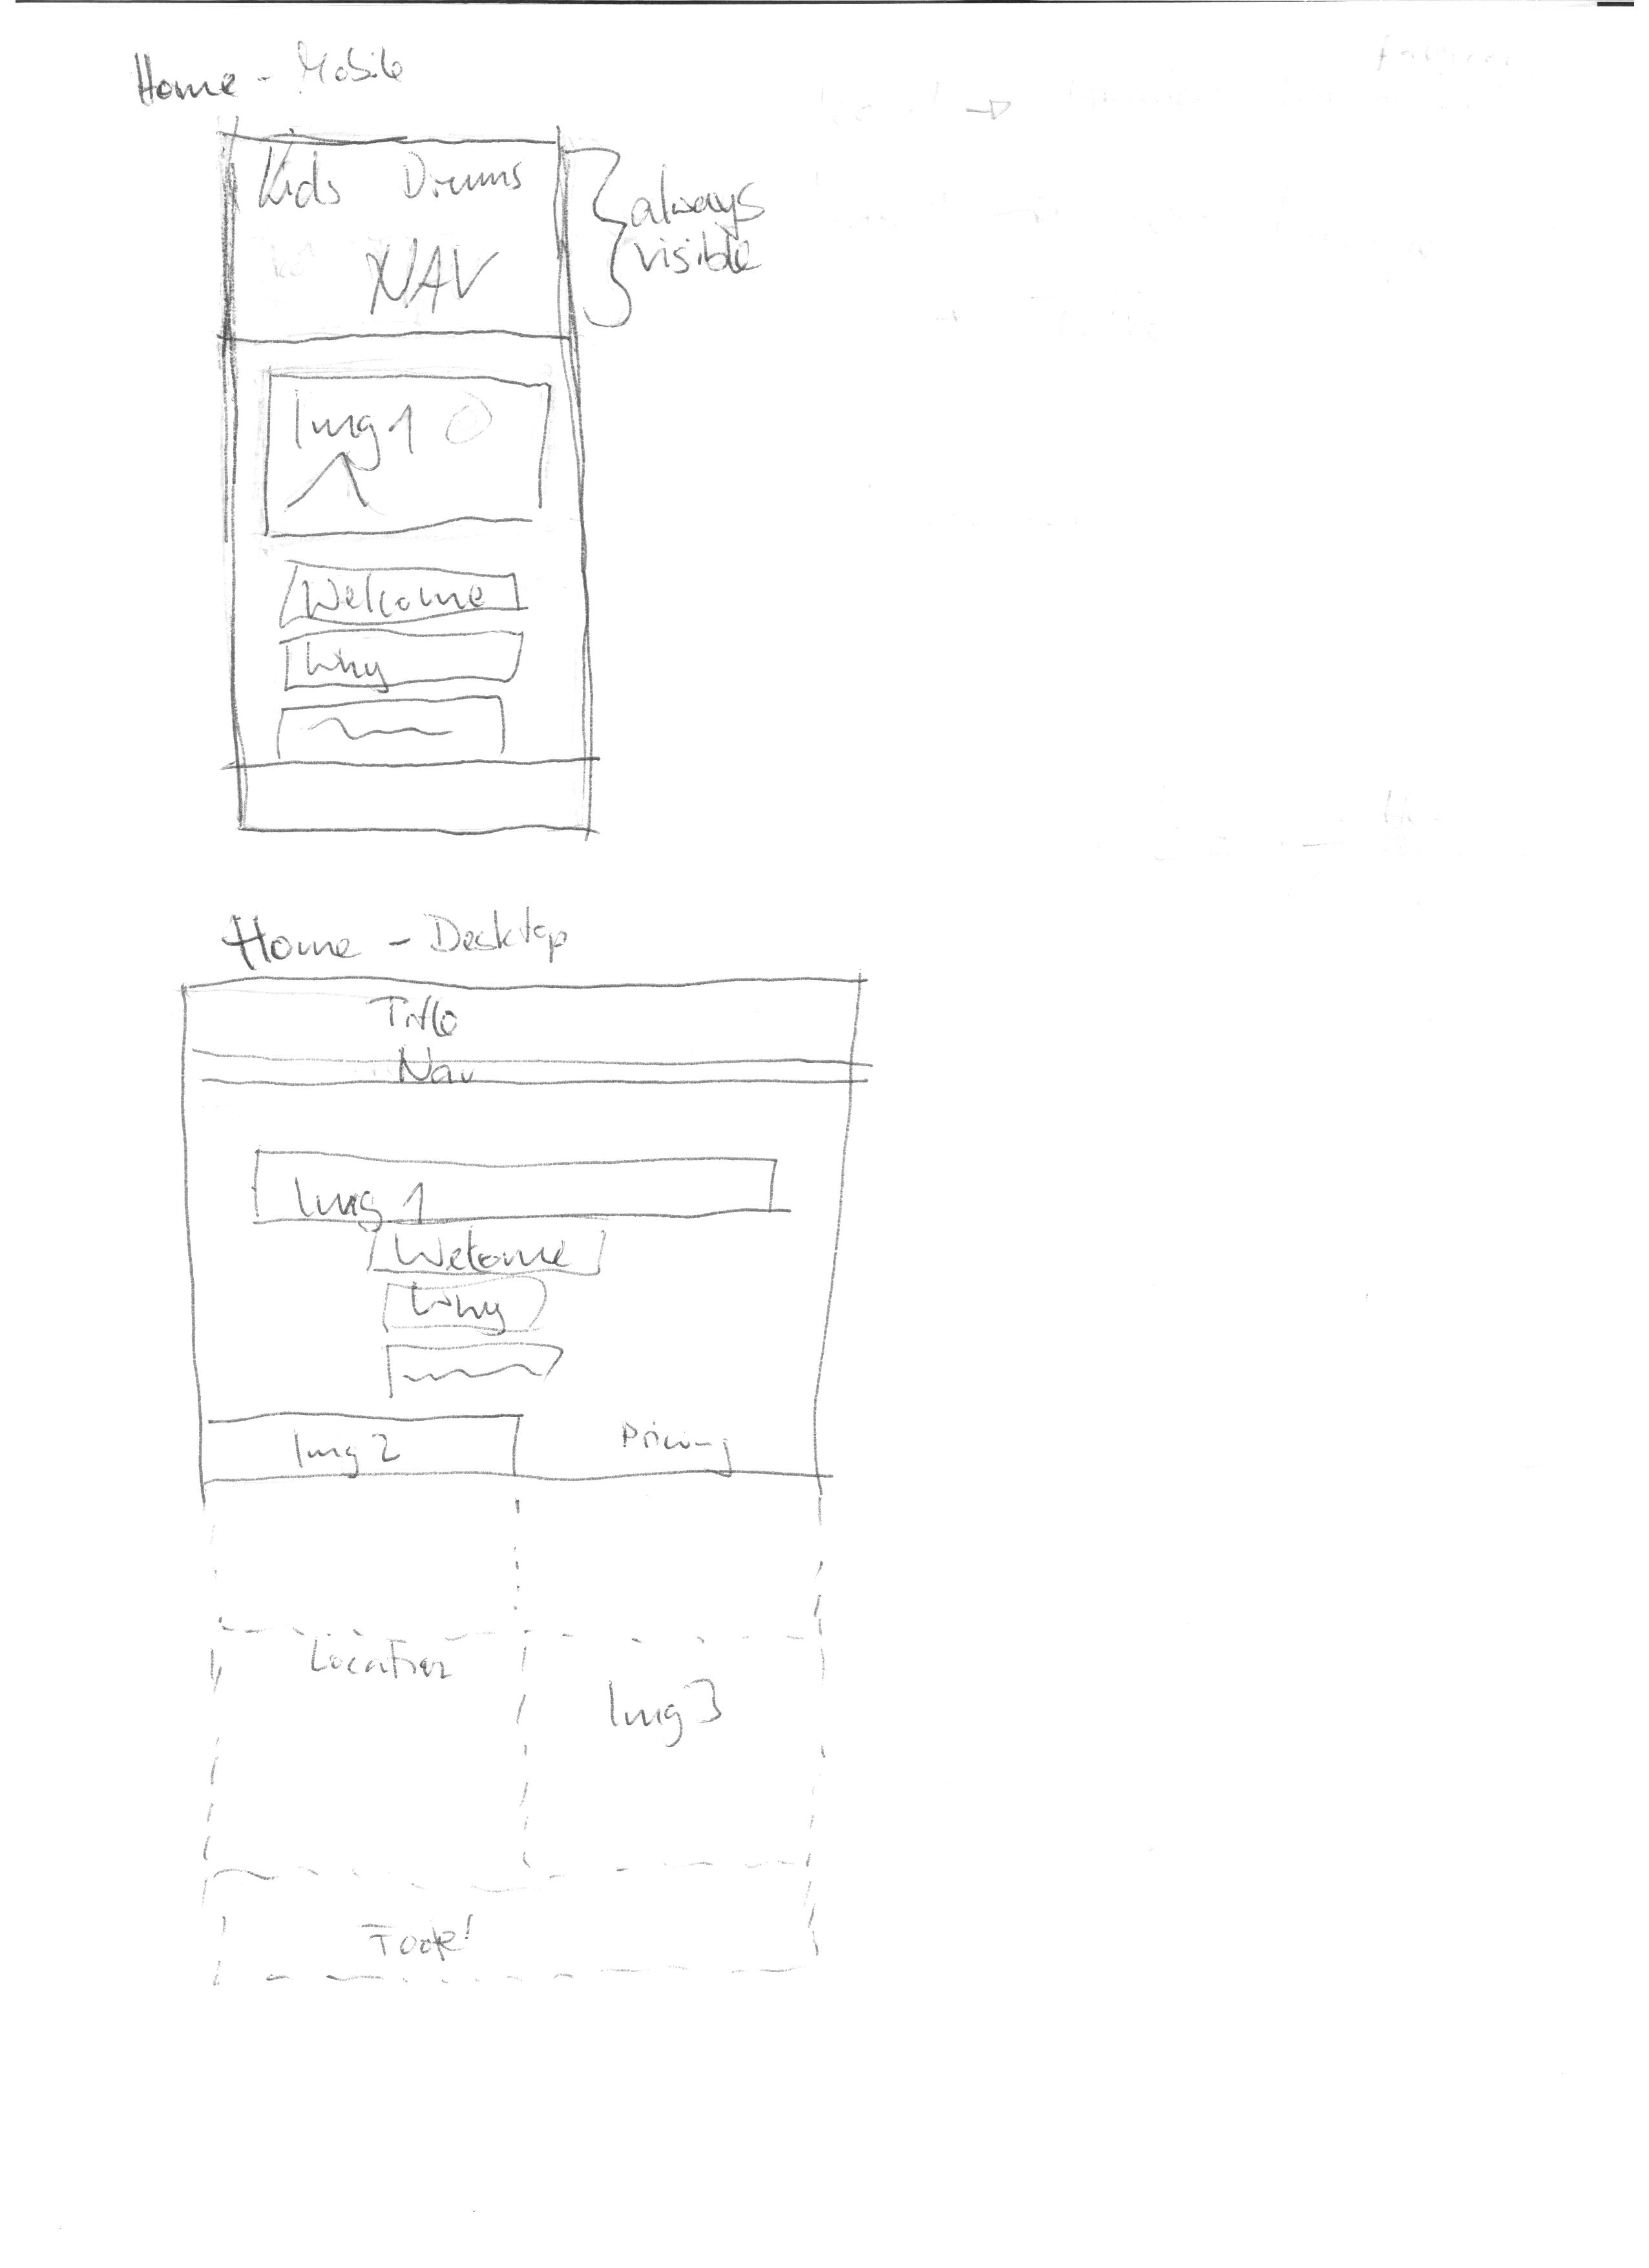 Home - Mobile
Kids Drums
NAV
always
visible
Img 1
Welcome
Why
Home - Desktop
Title
Nav
Img 1
Welcome
Why
Img 2
Pricing
Location
Img 3